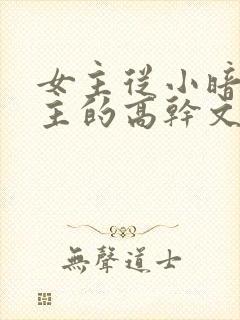 女主從小暗
主的高幹文
無聲道士